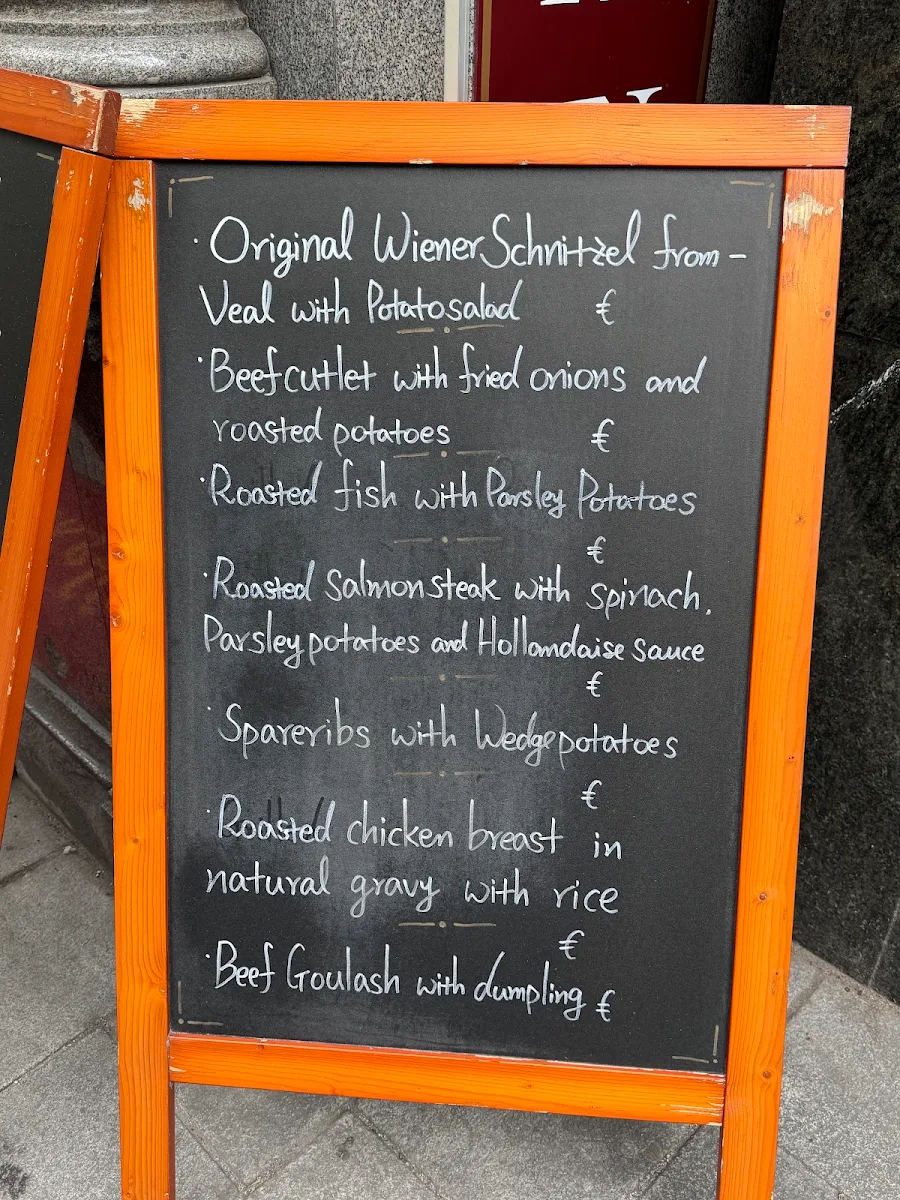 · Original Wiener Schnitzel from -
Veal with Potatosalad €
· Beefcutlet with fried onions and
roasted potatoes €
· Roasted fish with Parsley Potatoes
€
· Roasted Salmonsteak with spinach,
Parsleypotatoes and Hollandaise sauce
€
· Spareribs with Wedgepotatoes
€
· Roasted chicken breast in
natural gravy with rice
€
· Beef Goulash with dumpling €